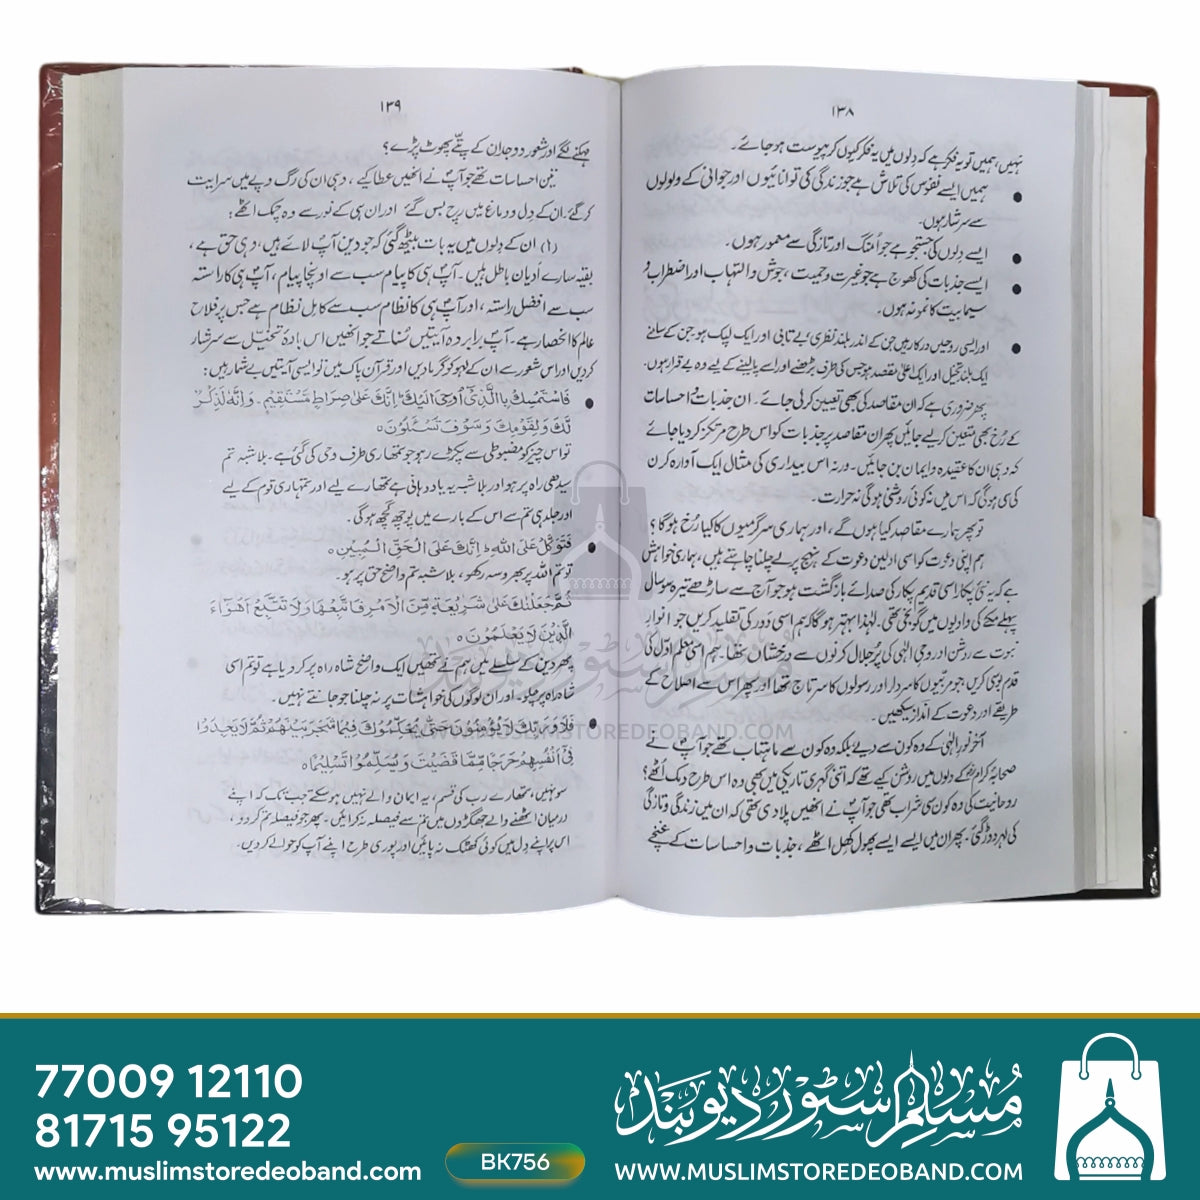 ۱۳۸
نہیں، ہمیں تو یہ فکر ہے کہ دِلوں میں یہ فکر کیوں کر پیوست ہو جائے۔
● ہمیں ایسے نفوس کی تلاش ہے جو زندگی کی توانائیوں اور جوانی کے ولولوں
سے سرشار ہوں۔
● ایسے دِلوں کی جستجو ہے جو اُمنگ اور تازگی سے معمور ہوں۔
● ایسے جذبات کی کھوج ہے جو غیرت و حمیت، جوش و التہاب اور اضطراب و
سیمابیت کا نمونہ ہوں۔
● اور ایسی روحیں درکار ہیں جن کے اندر بلند نظری، بے تابی اور ایک لپک ہو جن کے سامنے
ایک بلند تخیل اور ایک اعلیٰ مقصد ہو جس کی طرف بڑھنے اور اسے پا لینے کے لیے وہ بے قرار ہوں۔
پھر ضروری ہے کہ ان مقاصد کی بھی تعیین کر لی جائے۔ ان جذبات و احساسات
کے رُخ بھی متعین کر لیے جائیں پھر ان مقاصد پر جذبات کو اس طرح مرتکز کر دیا جائے
کہ وہی ان کا عقیدہ و ایمان بن جائیں۔ ورنہ اس بیداری کی مثال ایک آوارہ کرن
کی سی ہو گی کہ اس میں نہ کوئی روشنی ہوگی نہ حرارت۔
تو پھر ہمارے مقاصد کیا ہوں گے، اور ہماری سرگرمیوں کا کیا رُخ ہوگا؟
ہم اپنی دعوت کو اسی اولین دعوت کے نہج پر لے چلنا چاہتے ہیں، ہماری خواہش
ہے کہ یہ نئی پکار اسی قدیم پکار کی صدائے بازگشت ہو جو آج سے ساڑھے تیرہ سو سال
پہلے مکے کی وادیوں میں گونجی تھی۔ لہٰذا بہتر ہوگا کہ ہم اسی دَور کی تقلید کریں جو انوارِ
نبوت سے روشن اور وحیِ الٰہی کی پُر جلال کرنوں سے درخشاں تھا۔ ہم اسی معلمِ اوّل کی
قدم بوسی کریں جو مربّیوں کا سردار اور رسولوں کا سرتاج تھا اور پھر اس سے اصلاح کے
طریقے اور دعوت کے انداز سیکھیں۔
آخر نورِ الٰہی کے وہ کون سے دیے بلکہ وہ کون سے ماہتاب تھے جو آپؐ نے
صحابۂ کرامؓ کے دلوں میں روشن کیے تھے کہ اتنی گہری تاریکی میں بھی وہ اس طرح دمک اُٹھے؟
روحانیت کی وہ کون سی شراب تھی جو آپؐ نے انھیں پلا دی تھی کہ ان میں زندگی و تازگی
کی لہر دوڑ گئی۔ پھر ان میں ایسے ایسے پھول کھل اٹھے، جذبات و احساسات کے غنچے
۱۳۹
مہکنے لگے اور شعور و وجدان کے پتّے پھوٹ پڑے؟
تین احساسات تھے جو آپؐ نے انھیں عطا کیے، وہی ان کی رگ وپے میں سرایت
کر گئے۔ ان کے دِل و دماغ میں رچ بس گئے اور ان ہی کے نور سے وہ چمک اٹھے:
(۱) ان کے دلوں میں یہ بات بیٹھ گئی کہ جو دین آپؐ لائے ہیں، وہی حق ہے،
بقیہ سارے اَدیان باطل ہیں۔ آپؐ ہی کا پیام سب سے اونچا پیام، آپؐ ہی کا راستہ
سب سے افضل راستہ، اور آپؐ ہی کا نظام سب سے کامل نظام ہے جس پر فلاحِ
عالم کا انحصار ہے۔ آپؐ برابر وہ آیتیں سُناتے جو انھیں اس بادۂ تخیّل سے سرشار
کر دیں اور اس شعور سے ان کے لہو کو گرما دیں اور قرآن پاک میں تو ایسی آیتیں بے شمار ہیں:
● فَاسْتَمْسِكْ بِالَّذِيْٓ اُوْحِيَ اِلَيْكَ ۚ اِنَّكَ عَلٰى صِرَاطٍ مُّسْتَقِيْمٍ۔ وَاِنَّهٗ لَذِكْرٌ
لَّكَ وَلِقَوْمِكَ وَسَوْفَ تُسْـَٔلُوْنَ ہ
تو اس چیز کو مضبوطی سے پکڑے رہو جو تمھاری طرف وحی کی گئی ہے۔ بلاشبہ تم
سیدھی راہ پر ہو اور بلاشبہ یہ یاددہانی ہے تمھارے لیے اور تمھاری قوم کے لیے
اور جلد ہی تم سے اس کے بارے میں پوچھ گچھ ہوگی۔
● فَتَوَكَّلْ عَلَى اللّٰهِ ؕ اِنَّكَ عَلَى الْحَقِّ الْمُبِيْنِ ہ
تو تم اللہ پر بھروسہ رکھو، بلاشبہ تم واضح حق پر ہو۔
ثُمَّ جَعَلْنٰكَ عَلٰى شَرِيْعَةٍ مِّنَ الْاَمْرِ فَاتَّبِعْهَا وَلَا تَتَّبِعْ اَهْوَآءَ
الَّذِيْنَ لَا يَعْلَمُوْنَ ہ
پھر دین کے سلسلے میں ہم نے تمھیں ایک واضح شاہ راہ پر کر دیا ہے تو تم اسی
شاہ راہ پر چلو۔ اور ان لوگوں کی خواہشات پر نہ چلنا جو جانتے نہیں۔
● فَلَا وَرَبِّكَ لَا يُؤْمِنُوْنَ حَتّٰى يُحَكِّمُوْكَ فِيْمَا شَجَرَ بَيْنَهُمْ ثُمَّ لَا يَجِدُوْا
فِيْٓ اَنْفُسِهِمْ حَرَجًا مِّمَّا قَضَيْتَ وَيُسَلِّمُوْا تَسْلِيْمًا ہ
سو نہیں، تمھارے رب کی قسم، یہ ایمان والے نہیں ہو سکتے جب تک کہ اپنے
درمیان اٹھنے والے جھگڑوں میں تم سے فیصلہ نہ کرائیں۔ پھر جو فیصلہ تم کر دو،
اس پر اپنے دِل میں کوئی کھٹک نہ پائیں اور پوری طرح اپنے آپ کو حوالے کر دیں۔
مسلم سٹور دیوبند
WWW.MUSLIMSTOREDEOBAND.COM
77009 12110
81715 95122
www.muslimstoredeoband.com
BK756
مسلم سٹور دیوبند
WWW.MUSLIMSTOREDEOBAND.COM